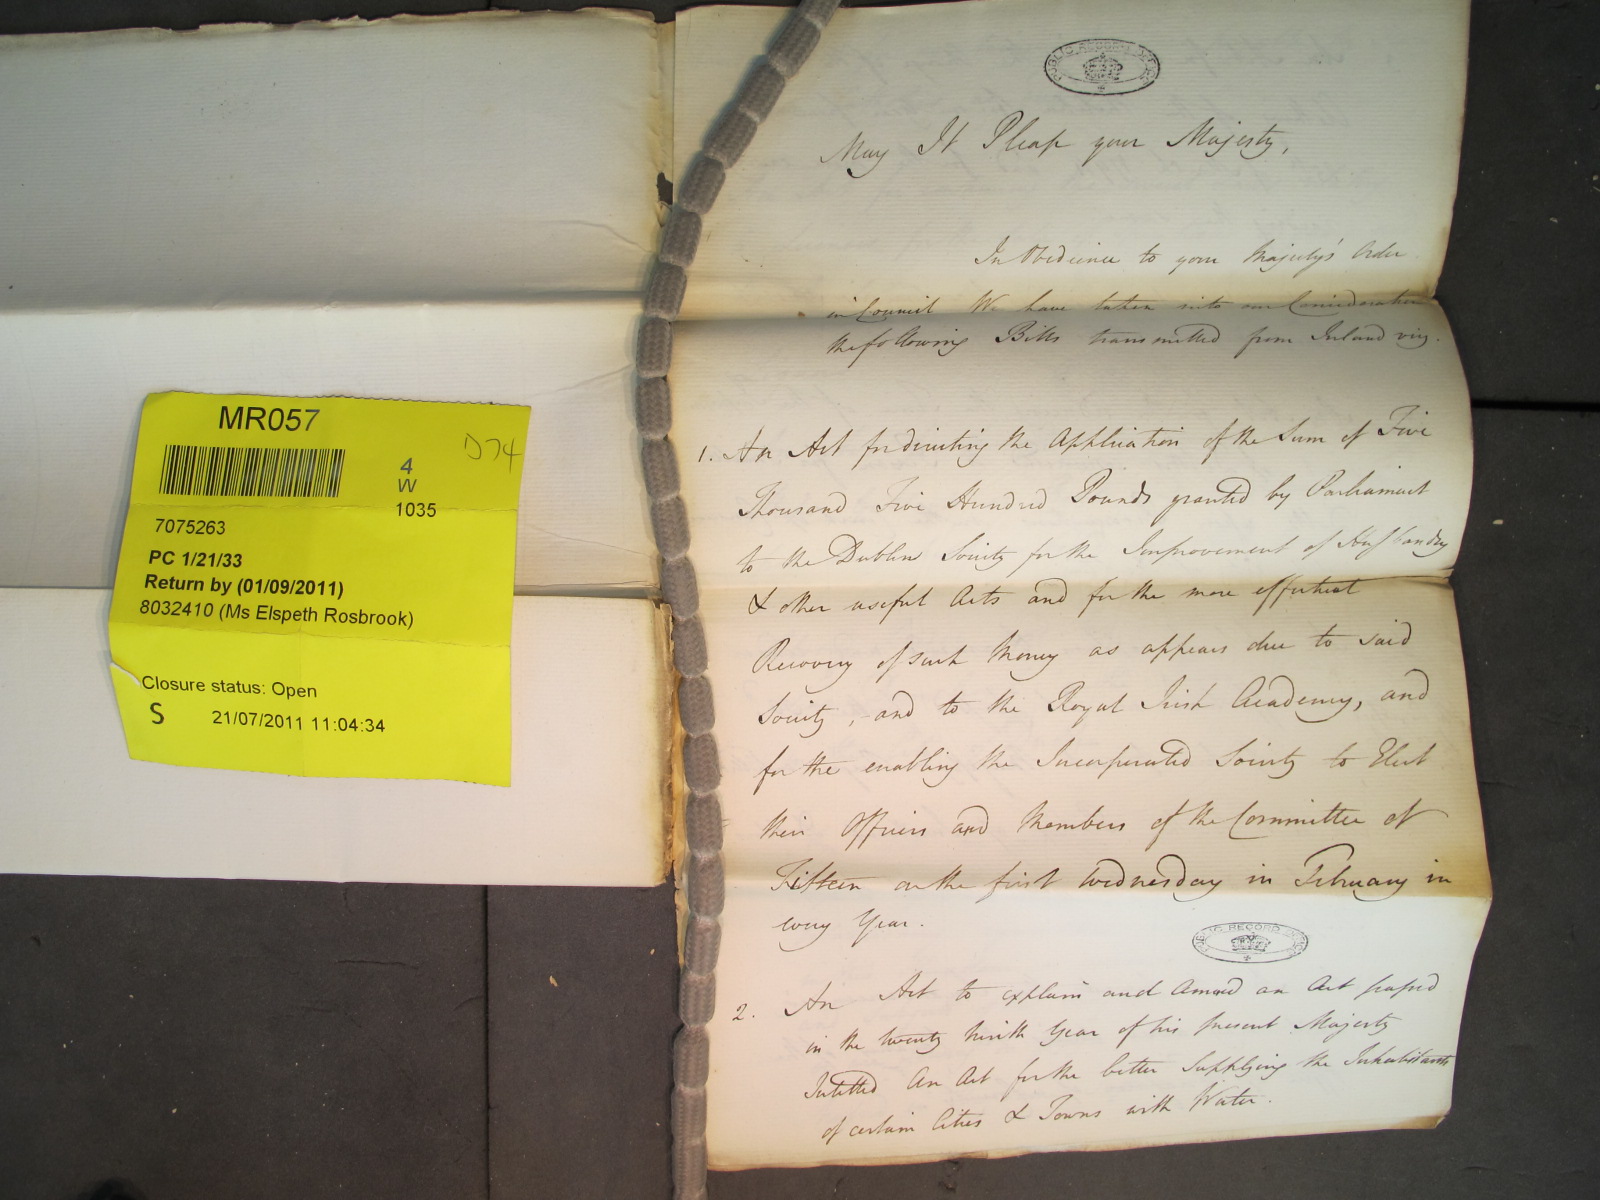 MR057
D74
4
W
1035
7075263
PC 1/21/33
Return by (01/09/2011)
8032410 (Ms Elspeth Rosbrook)
Closure status: Open
S 21/07/2011 11:04:34
PUBLIC RECORD OFFICE
May It Please your Majesty,
In Obedience to your Majesty's Order
in Council We have taken into our Consideration
the following Bills transmitted from Ireland viz.
1. An Act for directing the Application of the Sum of Five
Thousand Five Hundred Pounds granted by Parliament
to the Dublin Society for the Improvement of Husbandry
& other useful Arts and for the more effectual
Recovery of such Money as appears due to said
Society, and to the Royal Irish Academy, and
for the enabling the Incorporated Society to Elect
their Officers and Members of the Committee of
Fifteen on the first Wednesday in February in
every Year.
PUBLIC RECORD OFFICE
2. An Act to explain and Amend an Act passed
in the twenty ninth Year of his present Majesty
Intitled An Act for the better Supplying the Inhabitants
of certain Cities & Towns with Water.